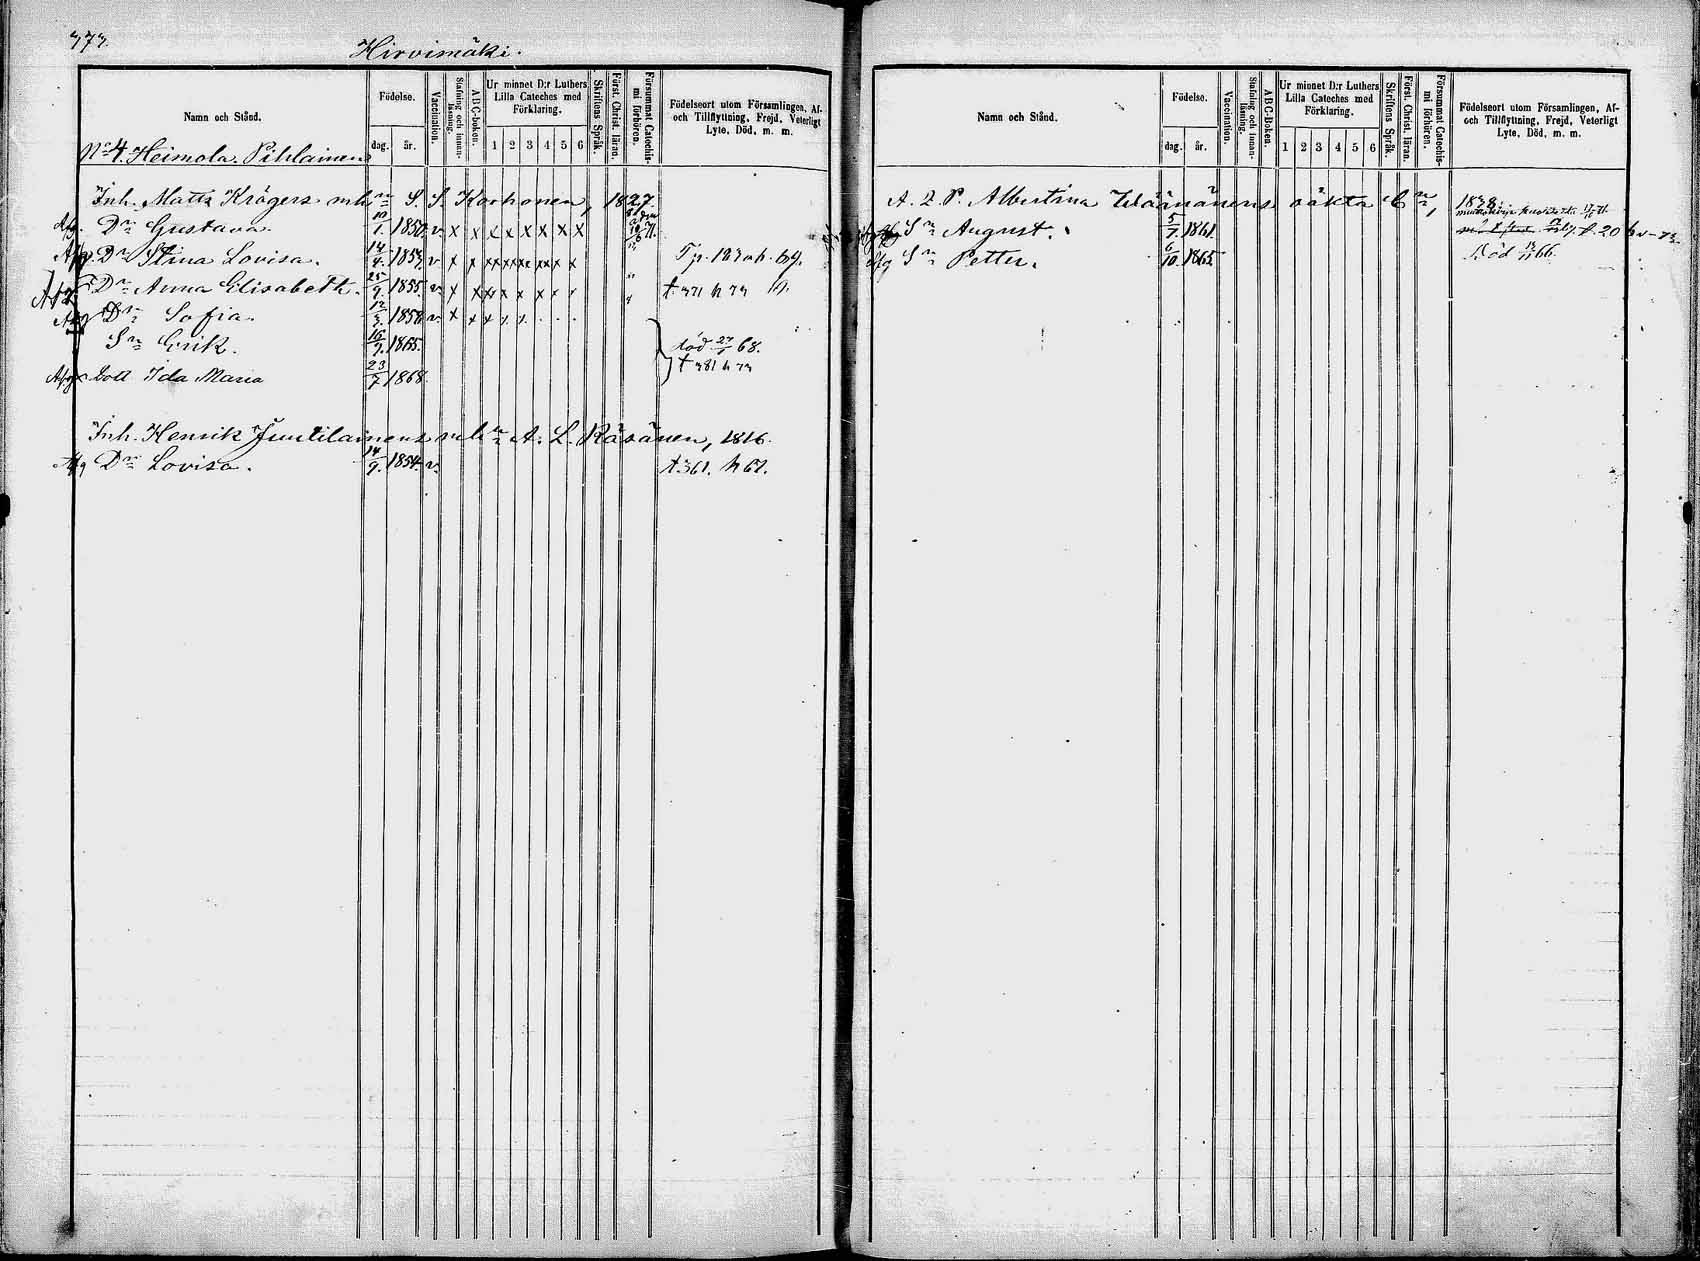 373.
Hirvimäki.
Namn och Stånd. Födelse. dag. år. Vaccination. Stafning och innan-läsning. A B C-boken. Ur minnet D:r Luthers Lilla Cateches med Förklaring. 1 2 3 4 5 6 Skriftens Språk. Först. Christ. läran. Försummat Catechis-mi förhören. Födelseort utom Församlingen, Af- och Tillflyttning, Frejd, Veterligt Lyte, Död, m. m.
No 4. Heimola. Pihlainen
Inh. Matts Krögers mhn S. S. Korhonen, 1827.
Afg. Dr Gustava. 10/1. 1850. v. x x x x x x x x
Afg. Dr Stina Lovisa. 14/4. 1853. v x x xx xx xx xx x x
Afg. Dr Anna Elisabeth. 25/9. 1855. v. x x xx x x x x x t. 371 h 73
Afg Dr Sofia. 12/3. 1858. v. x x x x x
Sn Erik. 16/9. 1865. död 27/1 68.
Afg Dott Ida Maria 23/7 1868 t 381 h 73
Inh. Henrik Juutilainens mhn A. L. Räsänen, 1816.
Afg Dr Lovisa. 14/9. 1854. v. t. 361. h 67.
Namn och Stånd. Födelse. dag. år. Vaccination. Stafning och innan-läsning. A B C-boken. Ur minnet D:r Luthers Lilla Cateches med Förklaring. 1 2 3 4 5 6 Skriftens Språk. Först. Christ. läran. Försummat Catechis-mi förhören. Födelseort utom Församlingen, Af- och Tillflyttning, Frejd, Veterligt Lyte, Död, m. m.
A. L. P. Albertina Väänänens oäkta 1838.
Afg Sn August. 5/7. 1861.
Afg Sn Petter. 6/10. 1865. Död 66.